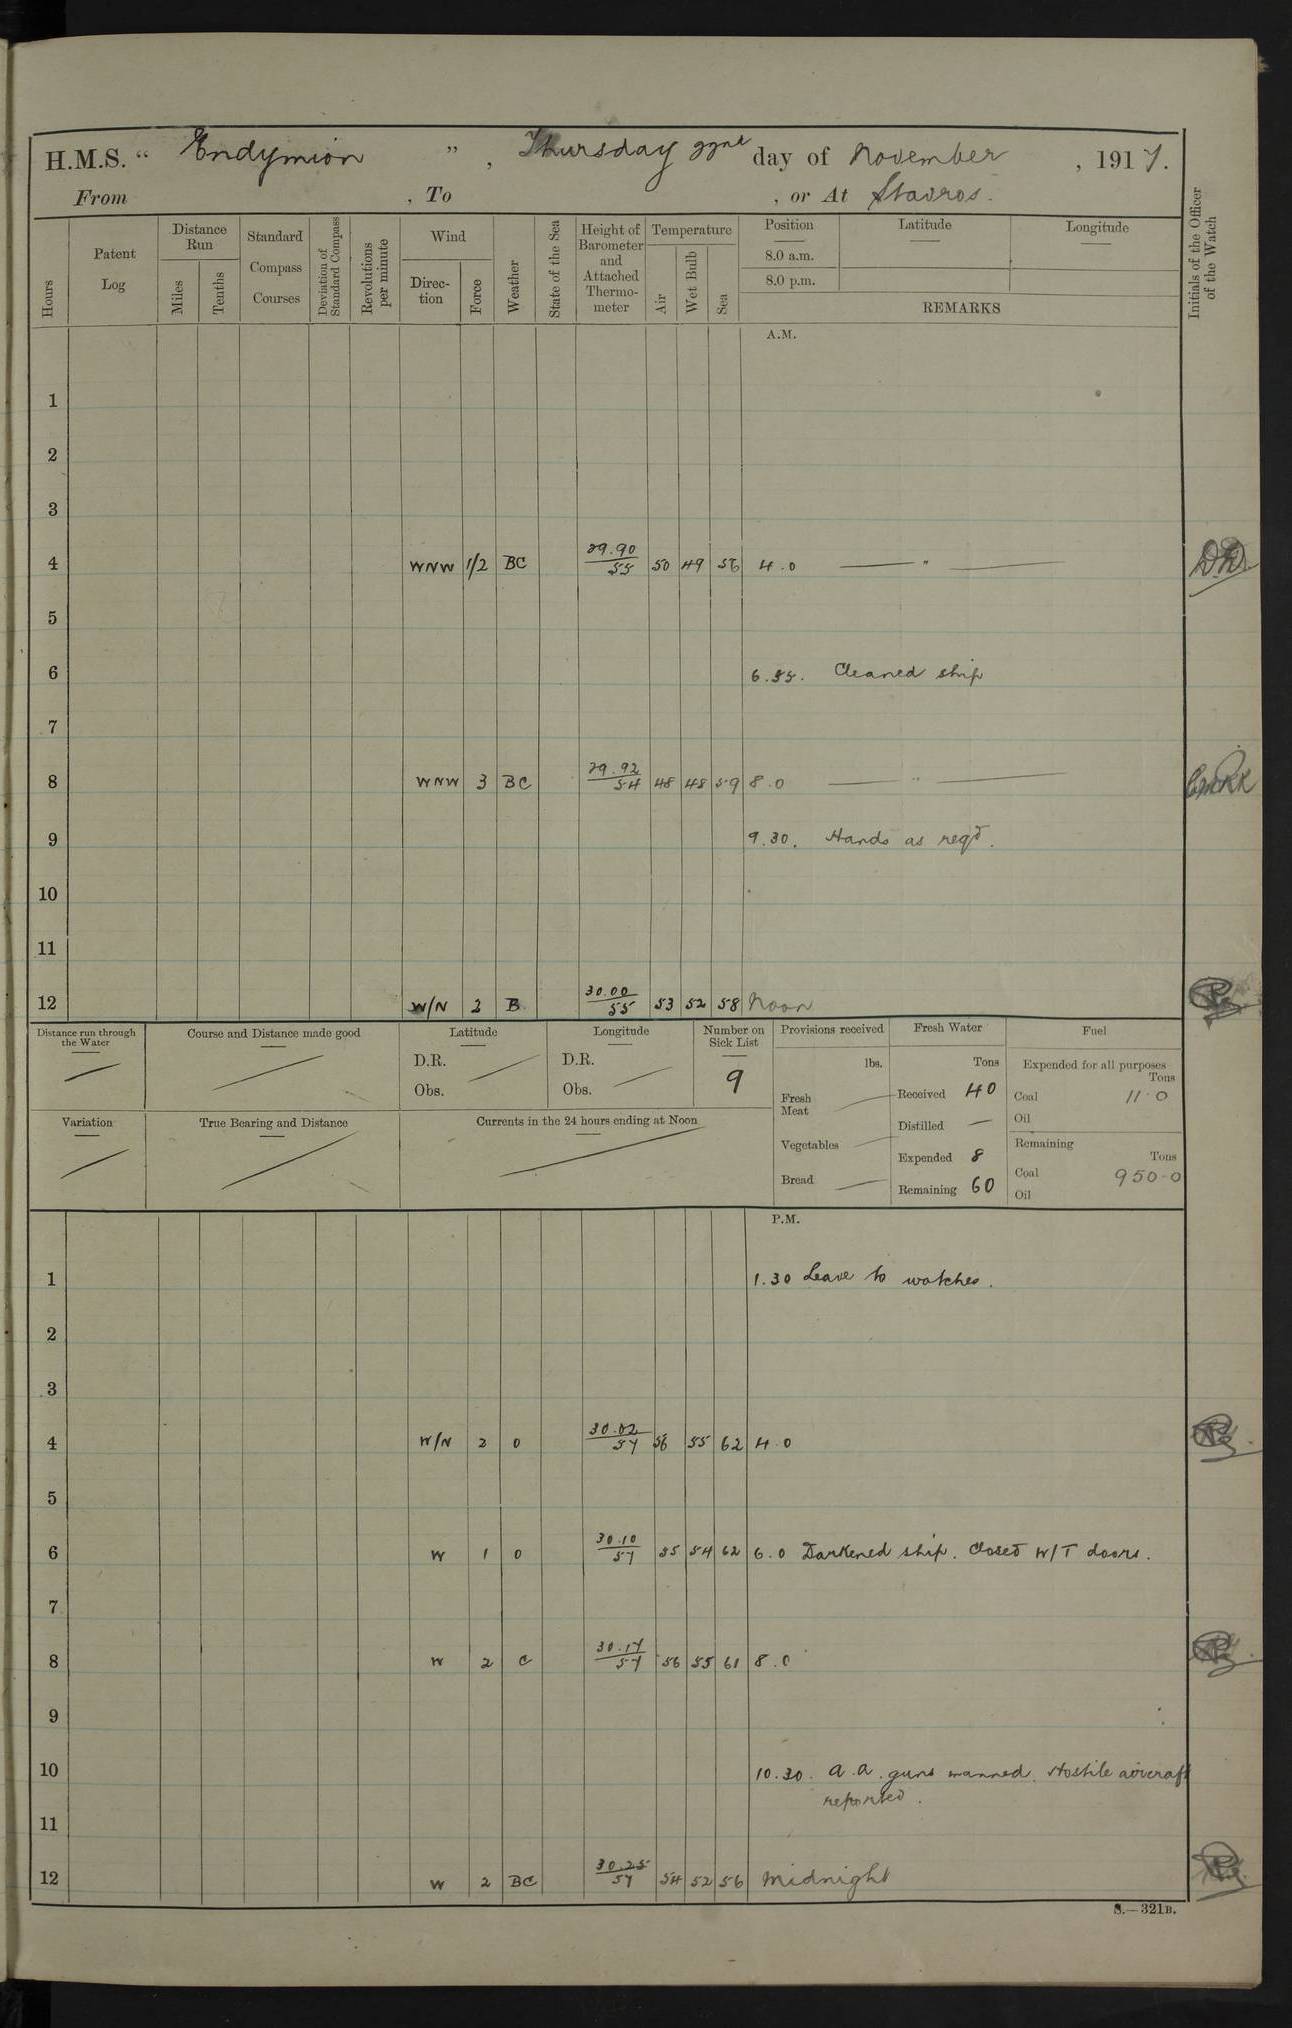 H.M.S. “ Endymion ” , Thursday 22nd day of November , 1917.
From , To , or At Stavros.
Hours
Patent Log
Distance Run
Miles
Tenths
Standard Compass Courses
Deviation of Standard Compass
Revolutions per minute
Wind
Direction
Force
Weather
State of the Sea
Height of Barometer and Attached Thermometer
Temperature
Air
Wet Bulb
Sea
Position
8.0 a.m.
8.0 p.m.
Latitude
Longitude
REMARKS
Initials of the Officer of the Watch
A.M.
1
2
3
4 WNW 1/2 BC 29.90/55 50 49 56 4.0 — " —
5
6 6.55. Cleaned ship
7
8 WNW 3 BC 29.92/54 48 48 59 8.0 — " —
9 9.30. Hands as reqd.
10
11
12 W/N 3 B 30.00/55 53 52 58 Noon
Distance run through the Water
Course and Distance made good
Latitude
D.R.
Obs.
Longitude
D.R.
Obs.
Number on Sick List
9
Provisions received
lbs.
Fresh Meat
Vegetables
Bread
Fresh Water
Tons
Received 40
Distilled —
Expended 8
Remaining 60
Fuel
Expended for all purposes
Tons
Coal 11.0
Oil
Remaining
Tons
Coal 950.0
Oil
Variation
True Bearing and Distance
Currents in the 24 hours ending at Noon
P.M.
1 1.30 Leave to watches.
2
3
4 W/N 2 O 30.02/57 56 55 62 4.0
5
6 W 1 O 30.10/57 55 54 62 6.0 Darkened ship. Closed W/T doors.
7
8 W 2 C 30.17/57 56 55 61 8.0
9
10 10.30. A.A. guns manned. Hostile aircraft
reported.
11
12 W 2 BC 30.25/57 54 52 56 Midnight
S.—321B.